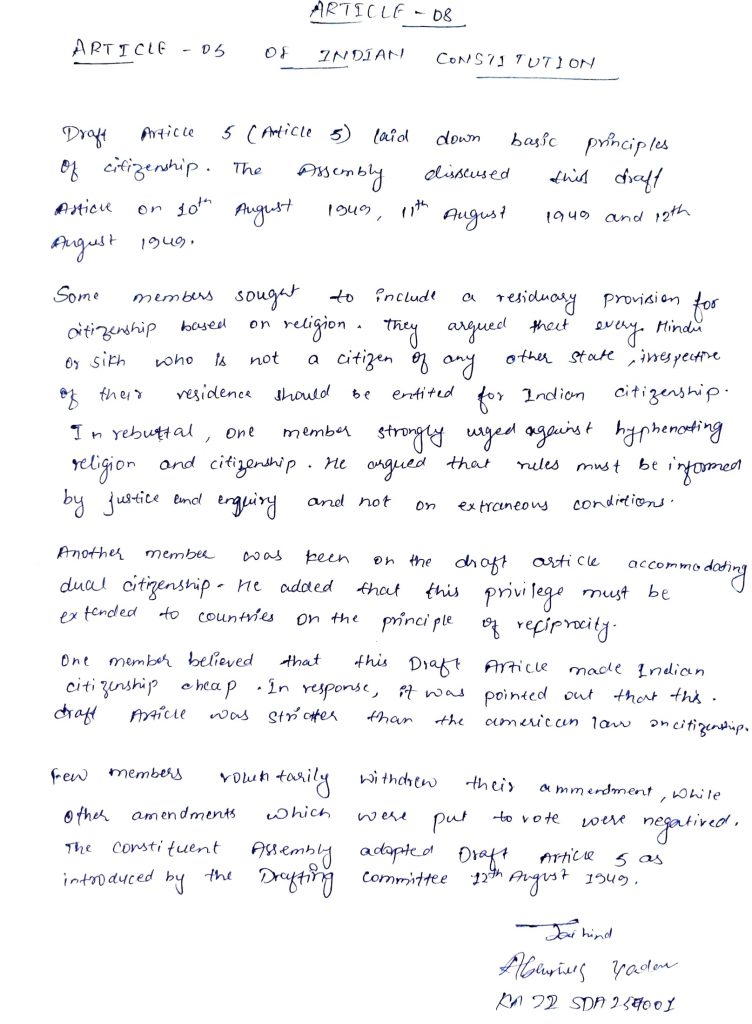 ARTICLE - 08
ARTICLE - 05 OF INDIAN CONSTITUTION
Draft Article 5 (Article 5) laid down basic principles
of citizenship. The Assembly disscused this draft
Article on 10th August 1949, 11th August 1949 and 12th
August 1949.
Some members sought to include a residuary provision for
citizenship based on religion. They argued that every Hindu
or sikh who is not a citizen of any other state, irrespective
of their residence should be entited for Indian citizenship.
In rebuttal, one member strongly urged against hyphenating
religion and citizenship. He argued that rules must be informed
by justice and enquiry and not on extraneous conditions.
Another member was keen on the draft article accommodating
dual citizenship. He added that this privilege must be
extended to countries on the principle of reciprocity.
One member believed that this Draft Article made Indian
citizenship cheap. In response, it was pointed out that this.
draft Article was stricter than the american law on citizenship.
Few members voluntarily withdrew their ammendment, while
other amendments which were put to vote were negatived.
The constituent Assembly adopted Draft Article 5 as
introduced by the Drafting committee 12th August 1949.
Jai hind
Yadav
SDA